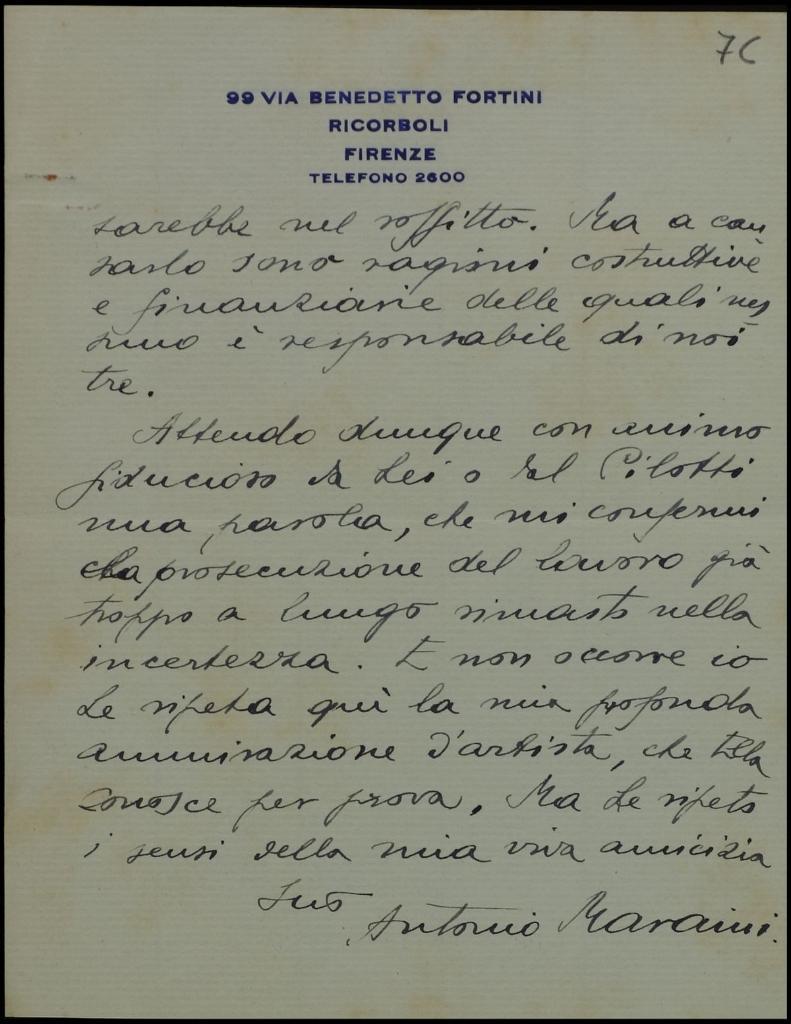 7C
99 VIA BENEDETTO FORTINI
RICORBOLI
FIRENZE
TELEFONO 2600
sarebbe nel soffitto. Ma a cau
sarlo sono ragioni costruttive
e finanziarie delle quali nes
suno è responsabile di noi
tre.
Attendo dunque con animo
fiducioso da Lei o dal Pilotti
una parola, che mi confermi
la prosecuzione del lavoro già
troppo a lungo rimasto nella
incertezza. E non occorre io
Le ripeta quì la mia profonda
ammirazione d'artista, che Ella
conosce per prova. Ma Le ripeto
i sensi della mia viva amicizia
Suo
Antonio Maraini.